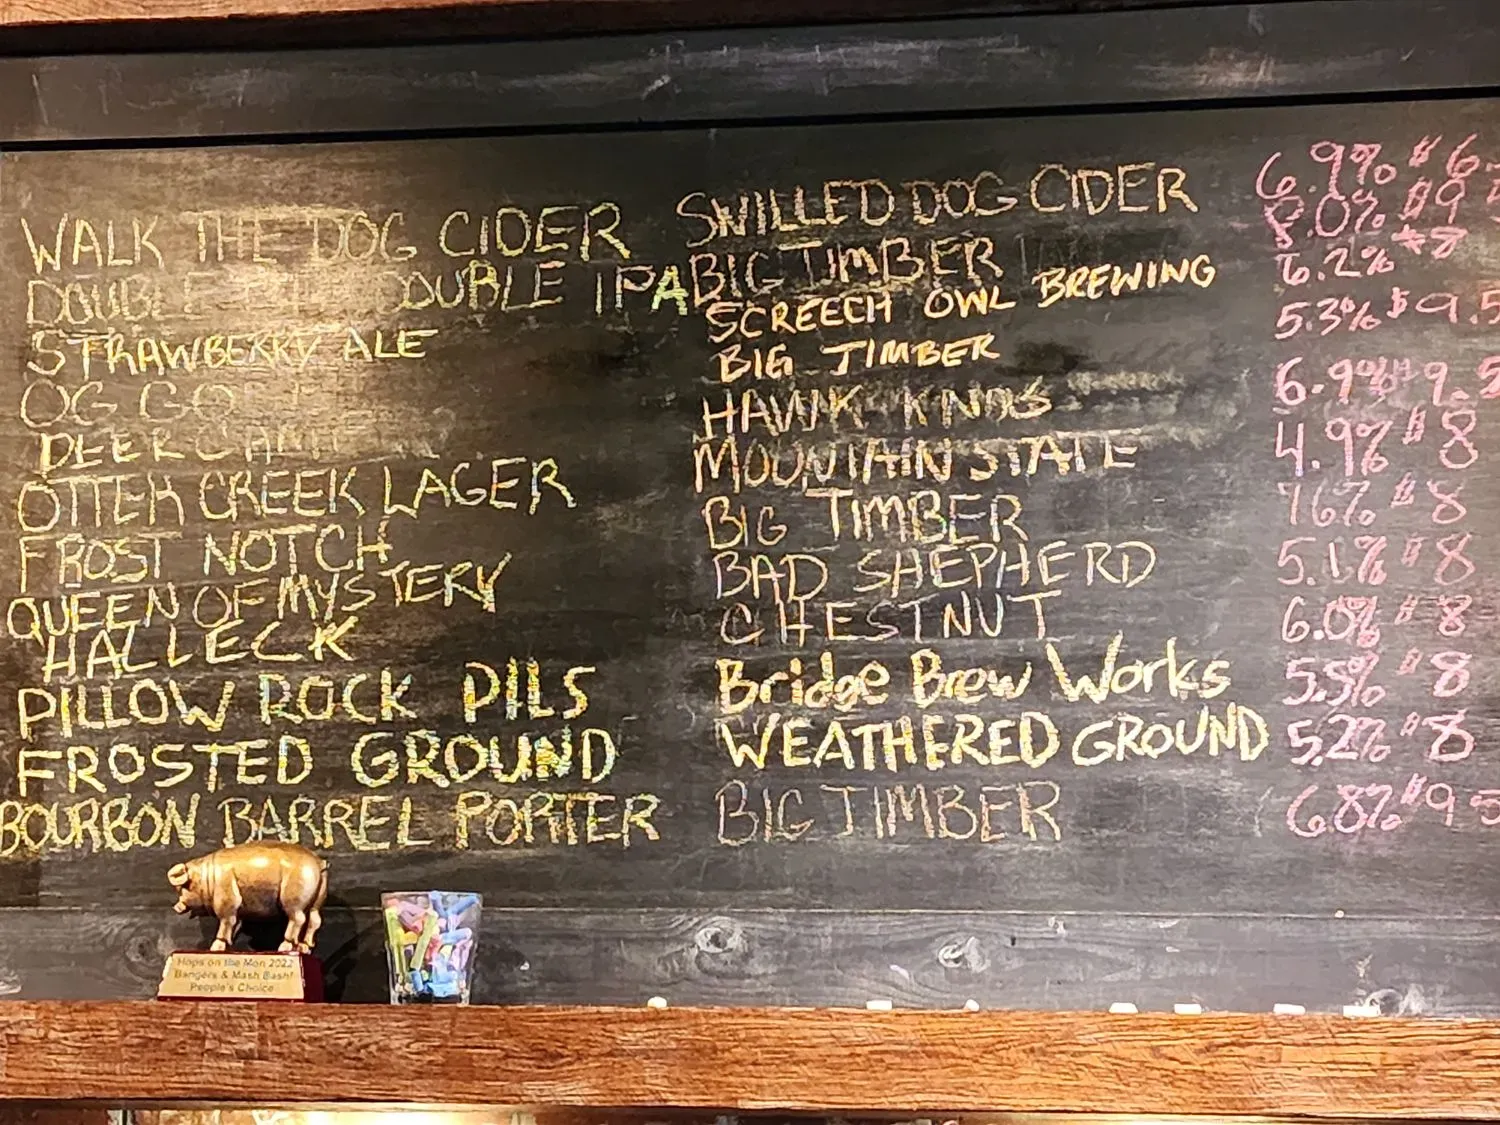 WALK THE DOG CIDER SWILLED DOG CIDER 6.9% $6.
DOUBLE DOUBLE IPA BIG TIMBER 8.0% $9.5
STRAWBERRY ALE SCREECH OWL BREWING 6.2% $8
OG GO BIG TIMBER 5.3% $9.5
DEER HAWK KNOB 6.9% $9.5
OTTER CREEK LAGER MOUNTAIN STATE 4.9% $8
FROST NOTCH BIG TIMBER 7.6% $8
QUEEN OF MYSTERY BAD SHEPHERD 5.1% $8
HALLECK CHESTNUT 6.0% $8
PILLOW ROCK PILS Bridge Brew Works 5.5% $8
FROSTED GROUND WEATHERED GROUND 5.2% $8
BOURBON BARREL PORTER BIG TIMBER 6.8% $9.5
Hops on the Mon 2022
Bangers & Mash Bash!
People's Choice